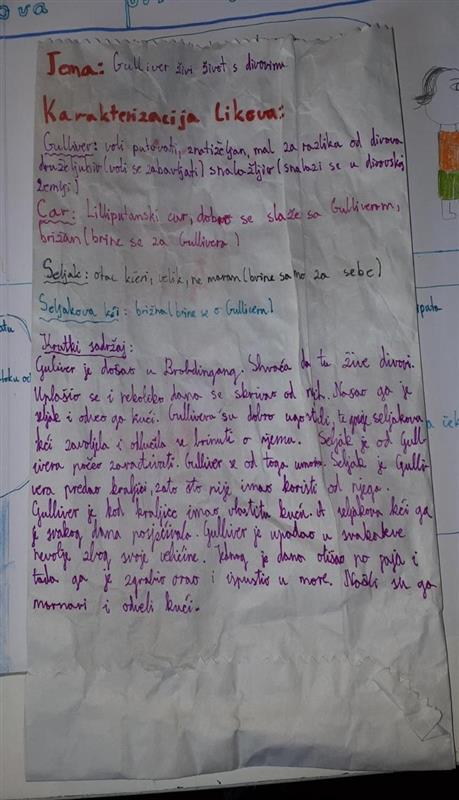 ova
Tema: Gulliver živi život s divovima
Karakterizacija Likova:
Gulliver: voli putovati, znatiželjan, mal za razlika od divova
druželjubiv (voli se zabavljati) snalažljiv (snalazi se u divovskoj
zemlji)
Car: Lilliputanski car, dobro se slaže sa Gulliverom,
brižan (brine se za Gullivera)
Seljak: otac kćeri, velik, ne maran (brine samo za sebe)
Seljakova kći: brižna (brine se o Gulliveru)
Kratki sadržaj:
Guliver je došao u Brobdingang. Shvaća da tu žive divovi.
Uplašio se i nekoliko dana se skrivao od njih. Našao ga je
seljak i odveo ga kući. Gullivera su dobro ugostili, te ga je seljakova
kći zavoljela i odlučila se brinuti o njemu. Seljak je od Gull-
ivera počeo zarađivati. Gulliver se od toga umorio. Seljak je Gulli-
vera predao kraljici, zato što nije imao koristi od njega.
Gulliver je kod kraljice imao vlastitu kućicu. A seljakova kći ga
je svakog dana posjećivala. Gulliver je upadao u svakakve
nevolje zbog svoje veličine. Jednog je dana otišao na plažu i
tada ga je zgrabio orao i ispustio u more. Našli su ga
mornari i odveli kući.